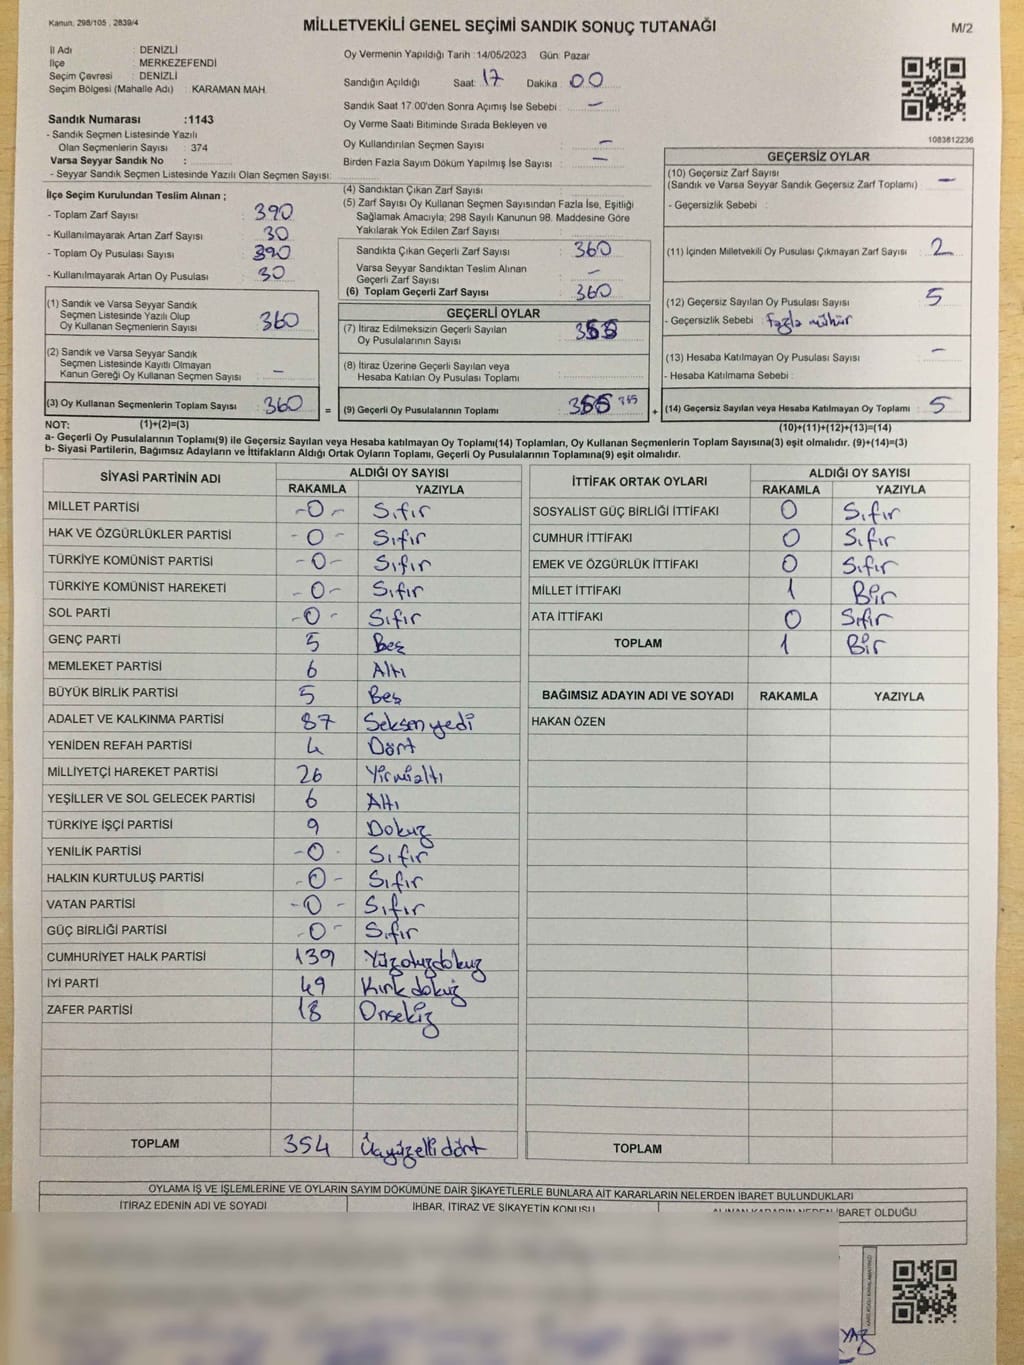 Kanun: 298/105 , 2839/4
MİLLETVEKİLİ GENEL SEÇİMİ SANDIK SONUÇ TUTANAĞI
M/2
İl Adı : DENİZLİ
İlçe : MERKEZEFENDİ
Seçim Çevresi : DENİZLİ
Seçim Bölgesi (Mahalle Adı) : KARAMAN MAH.
Oy Vermenin Yapıldığı Tarih :14/05/2023 Gün: Pazar
Sandığın Açıldığı Saat: 17 Dakika : 00
Sandık Saat 17:00'den Sonra Açımış İse Sebebi : -
Oy Verme Saati Bitiminde Sırada Bekleyen ve
Oy Kullandırılan Seçmen Sayısı : -
Birden Fazla Sayım Döküm Yapılmış İse Sayısı : -
1083612236
Sandık Numarası :1143
- Sandık Seçmen Listesinde Yazılı
Olan Seçmenlerin Sayısı : 374
Varsa Seyyar Sandık No :
- Seyyar Sandık Seçmen Listesinde Yazılı Olan Seçmen Sayısı:
İlçe Seçim Kurulundan Teslim Alınan ;
- Toplam Zarf Sayısı : 390
- Kullanılmayarak Artan Zarf Sayısı : 30
- Toplam Oy Pusulası Sayısı : 390
- Kullanılmayarak Artan Oy Pusulası : 30
(1) Sandık ve Varsa Seyyar Sandık
Seçmen Listesinde Yazılı Olup
Oy Kullanan Seçmenlerin Sayısı : 360
(2) Sandık ve Varsa Seyyar Sandık
Seçmen Listesinde Kayıtlı Olmayan
Kanun Gereği Oy Kullanan Seçmen Sayısı : -
(3) Oy Kullanan Seçmenlerin Toplam Sayısı : 360
(4) Sandıktan Çıkan Zarf Sayısı :
(5) Zarf Sayısı Oy Kullanan Seçmen Sayısından Fazla İse, Eşitliği
Sağlamak Amacıyla; 298 Sayılı Kanunun 98. Maddesine Göre
Yakılarak Yok Edilen Zarf Sayısı :
Sandıkta Çıkan Geçerli Zarf Sayısı : 360
Varsa Seyyar Sandıktan Teslim Alınan
Geçerli Zarf Sayısı : -
(6) Toplam Geçerli Zarf Sayısı : 360
GEÇERLİ OYLAR
(7) İtiraz Edilmeksizin Geçerli Sayılan
Oy Pusulalarının Sayısı :
(8) İtiraz Üzerine Geçerli Sayılan veya
Hesaba Katılan Oy Pusulası Toplamı :
= (9) Geçerli Oy Pusulalarının Toplamı :
GEÇERSİZ OYLAR
(10) Geçersiz Zarf Sayısı
(Sandık ve Varsa Seyyar Sandık Geçersiz Zarf Toplamı) : -
- Geçersizlik Sebebi :
(11) İçinden Milletvekili Oy Pusulası Çıkmayan Zarf Sayısı : 2
(12) Geçersiz Sayılan Oy Pusulası Sayısı : 5
- Geçersizlik Sebebi : fazla mühür
(13) Hesaba Katılmayan Oy Pusulası Sayısı : -
- Hesaba Katılmama Sebebi :
+ (14) Geçersiz Sayılan veya Hesaba Katılmayan Oy Toplamı : 5
NOT: (1)+(2)=(3)
(10)+(11)+(12)+(13)=(14)
a- Geçerli Oy Pusulalarının Toplamı(9) ile Geçersiz Sayılan veya Hesaba katılmayan Oy Toplamı(14) Toplamları, Oy Kullanan Seçmenlerin Toplam Sayısına(3) eşit olmalıdır. (9)+(14)=(3)
b- Siyasi Partilerin, Bağımsız Adayların ve İttifakların Aldığı Ortak Oyların Toplamı, Geçerli Oy Pusulalarının Toplamına(9) eşit olmalıdır.
SİYASİ PARTİNİN ADI ALDIĞI OY SAYISI
RAKAMLA YAZIYLA
MİLLET PARTİSİ -0- Sıfır
HAK VE ÖZGÜRLÜKLER PARTİSİ -0- Sıfır
TÜRKİYE KOMÜNİST PARTİSİ -0- Sıfır
TÜRKİYE KOMÜNİST HAREKETİ -0- Sıfır
SOL PARTİ -0- Sıfır
GENÇ PARTİ 5 Beş
MEMLEKET PARTİSİ 6 Altı
BÜYÜK BİRLİK PARTİSİ 5 Beş
ADALET VE KALKINMA PARTİSİ 87 Seksen yedi
YENİDEN REFAH PARTİSİ 4 Dört
MİLLİYETÇİ HAREKET PARTİSİ 26 Yirmialtı
YEŞİLLER VE SOL GELECEK PARTİSİ 6 Altı
TÜRKİYE İŞÇİ PARTİSİ 9 Dokuz
YENİLİK PARTİSİ -0- Sıfır
HALKIN KURTULUŞ PARTİSİ -0- Sıfır
VATAN PARTİSİ -0- Sıfır
GÜÇ BİRLİĞİ PARTİSİ -0- Sıfır
CUMHURİYET HALK PARTİSİ 139 Yüzotuzdokuz
İYİ PARTİ 49 Kırk dokuz
ZAFER PARTİSİ 18 Onsekiz
TOPLAM 354 Üçyüzelli dört
İTTİFAK ORTAK OYLARI ALDIĞI OY SAYISI
RAKAMLA YAZIYLA
SOSYALİST GÜÇ BİRLİĞİ İTTİFAKI 0 Sıfır
CUMHUR İTTİFAKI 0 Sıfır
EMEK VE ÖZGÜRLÜK İTTİFAKI 0 Sıfır
MİLLET İTTİFAKI 1 Bir
ATA İTTİFAKI 0 Sıfır
TOPLAM 1 Bir
BAĞIMSIZ ADAYIN ADI VE SOYADI RAKAMLA YAZIYLA
HAKAN ÖZEN
TOPLAM
OYLAMA İŞ VE İŞLEMLERİNE VE OYLARIN SAYIM DÖKÜMÜNE DAİR ŞİKAYETLERLE BUNLARA AİT KARARLARIN NELERDEN İBARET BULUNDUKLARI
İTİRAZ EDENİN ADI VE SOYADI İHBAR, İTİRAZ VE ŞİKAYETİN KONUSU ALINAN KARARIN NEDEN İBARET OLDUĞU